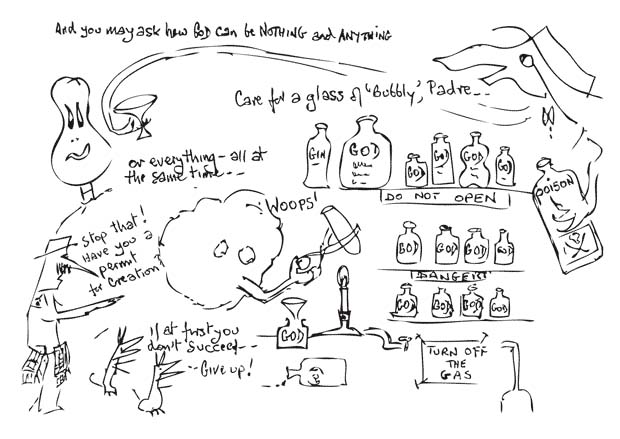 And you may ask how GOD can be NOTHING and ANYTHING
Care for a glass of 'Bubbly', Padre--
or everything - all at
the same time---
WOOPS!
GIN
GOD
GOD
GOD
GOD
GOD
DO NOT OPEN
POISON
Stop that!
Have you a
permit
for Creation?
GOD
GOD
GOD
GOD
DANGER!
GOD
GOD
GOD
GOD
If at first you
don't succeed---
--Give up!
GOD
TURN OFF
THE
GAS